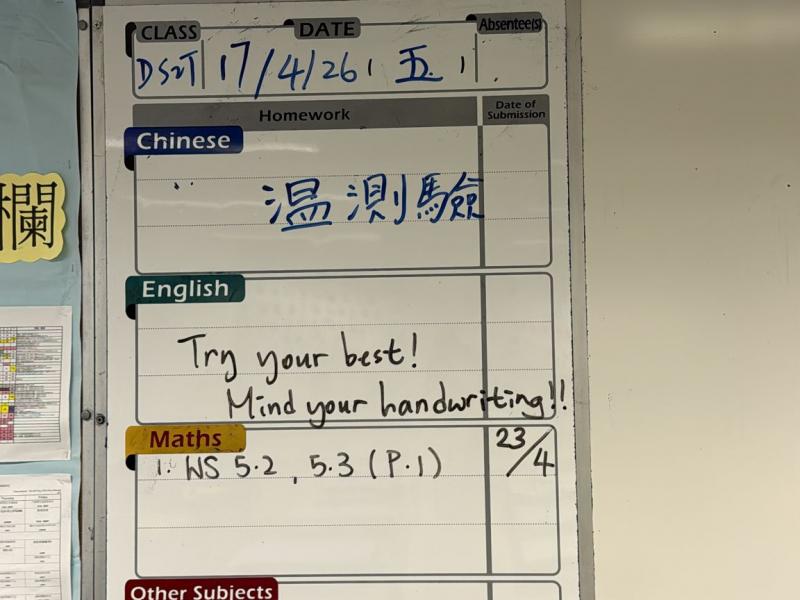 CLASS DATE Absentee(s)
DS2T 17/4/26 (五)
Homework Date of Submission
Chinese
温測驗
English
Try your best!
Mind your handwriting!!
Maths
1. WS 5.2, 5.3 (P.1) 23/4
Other Subjects
欄